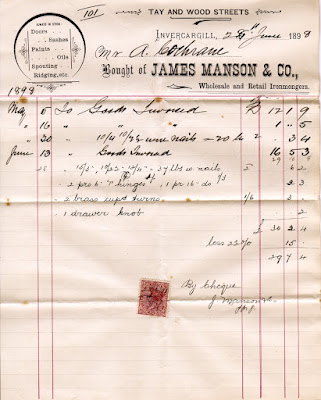 101
TAY AND WOOD STREETS
CASH IN FOR
Doors
Sashes
Paints
Oils
Sporting
Ridging, etc.
INVERCARGILL, 28th June 1898
Mr A. Cochrane
Bought of JAMES MANSON & CO.,
Wholesale and Retail Ironmongers.
1898
May 5 To Goods Invoiced 12 1 9
" 16 " 1 " 5
" 30 " wire nails 2 3 4
June 13 " Goods Invoiced 16 5 3
28 " 37 lbs w. nails 5 6 2
" 2 prs 6" T hinges 1 pr 16" do 3 3
" 2 brass cupd turns 1/6 3
1 drawer knob 2
£ 30 2 4
less 2½% 15
29 7 4
By Cheque
J. Manson & Co